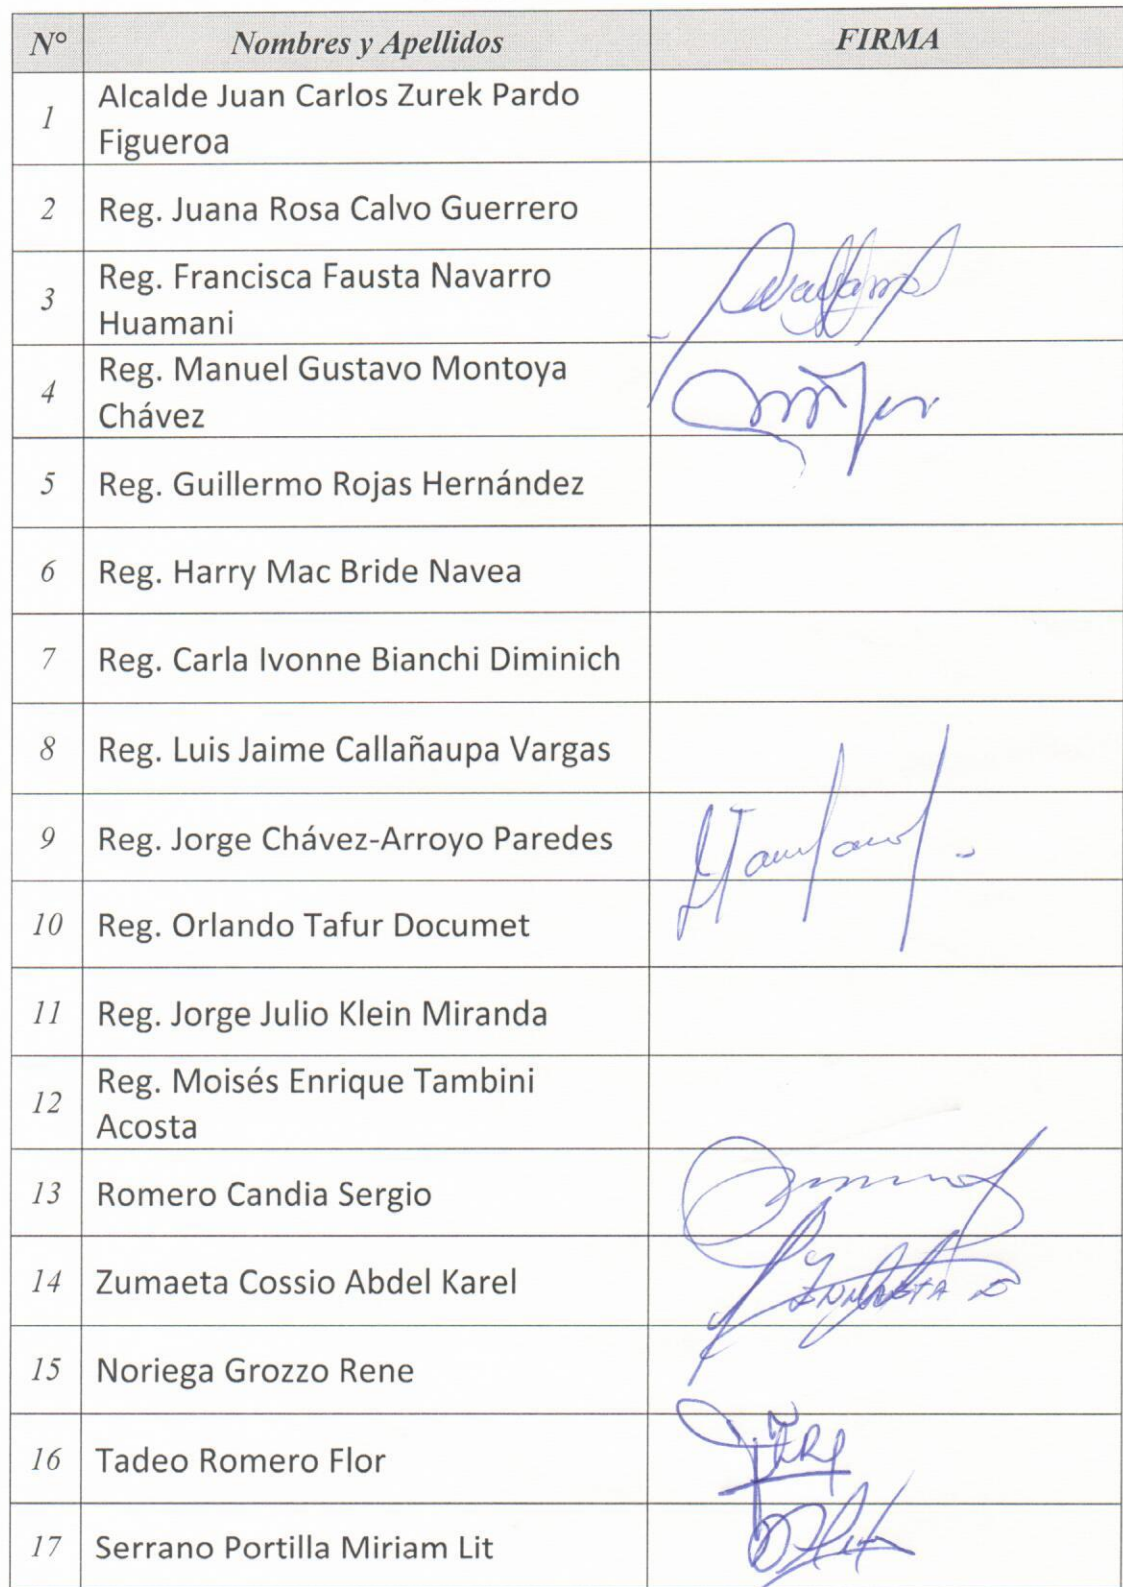 N° Nombres y Apellidos FIRMA
1 Alcalde Juan Carlos Zurek Pardo
Figueroa
2 Reg. Juana Rosa Calvo Guerrero
3 Reg. Francisca Fausta Navarro
Huamani
4 Reg. Manuel Gustavo Montoya
Chávez
5 Reg. Guillermo Rojas Hernández
6 Reg. Harry Mac Bride Navea
7 Reg. Carla Ivonne Bianchi Diminich
8 Reg. Luis Jaime Callañaupa Vargas
9 Reg. Jorge Chávez-Arroyo Paredes
10 Reg. Orlando Tafur Documet
11 Reg. Jorge Julio Klein Miranda
12 Reg. Moisés Enrique Tambini
Acosta
13 Romero Candia Sergio
14 Zumaeta Cossio Abdel Karel
15 Noriega Grozzo Rene
16 Tadeo Romero Flor
17 Serrano Portilla Miriam Lit